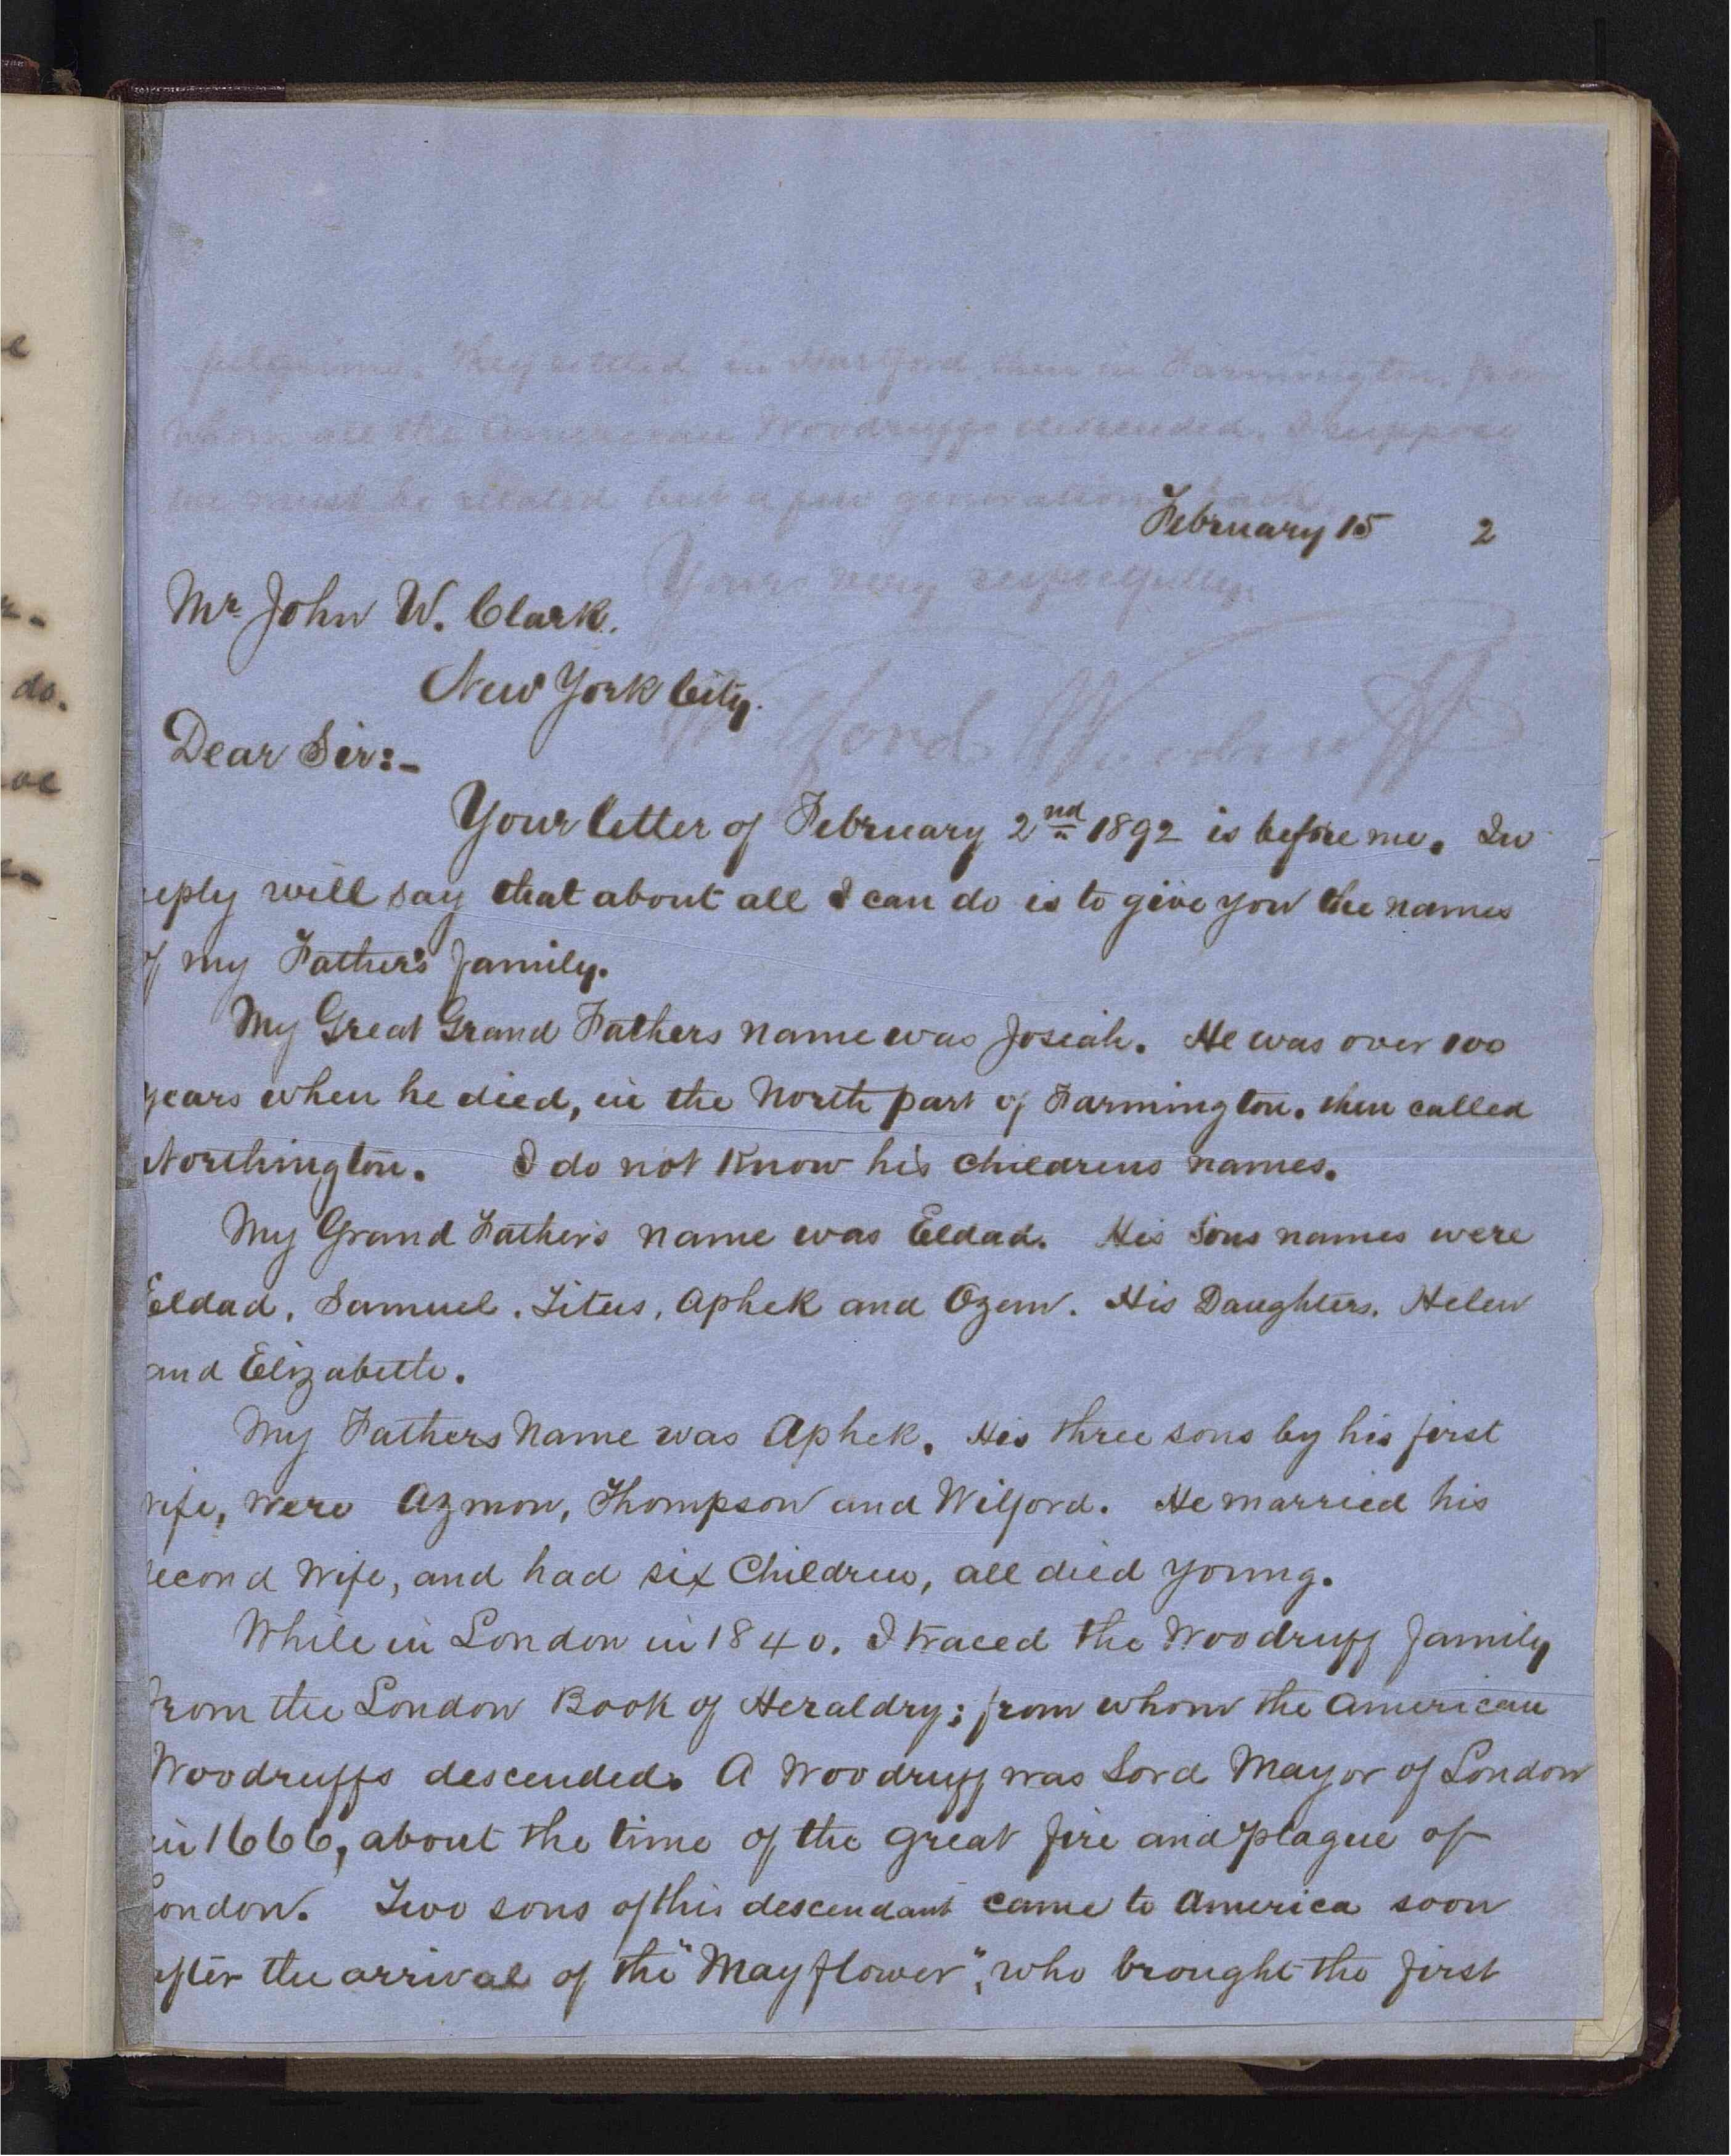 pilgrims. They settled in Hartford then in Farmington, from
whom all the American Woodruffs descended. I suppose
we must be related but a few generations back.
February 15 2
Yours very respectfully.
Mr John W. Clark.
New York City.
Wilford Woodruff
Dear Sir:-
Your letter of February 2nd 1892 is before me. In
reply will say that about all I can do is to give you the names
of my Father's family.
My Great Grand Fathers name was Josiah. He was over 100
years when he died, in the North part of Farmington. then called
Northington. I do not know his childrens names.
My Grand Father's name was Eldad. His Sons names were
Eldad, Samuel, Titus, Aphek and Ozem. His Daughters, Helen
and Elizabeth.
My Fathers Name was Aphek. His three sons by his first
wife, were Azmon, Thompson and Wilford. He married his
second Wife, and had six Children, all died young.
While in London in 1840. I traced the Woodruff family
from the London Book of Heraldry; from whom the American
Woodruffs descended. A Woodruff was Lord Mayor of London
in 1666, about the time of the great fire and plague of
London. Two sons of this descendant came to America soon
after the arrival of the "Mayflower", who brought the first